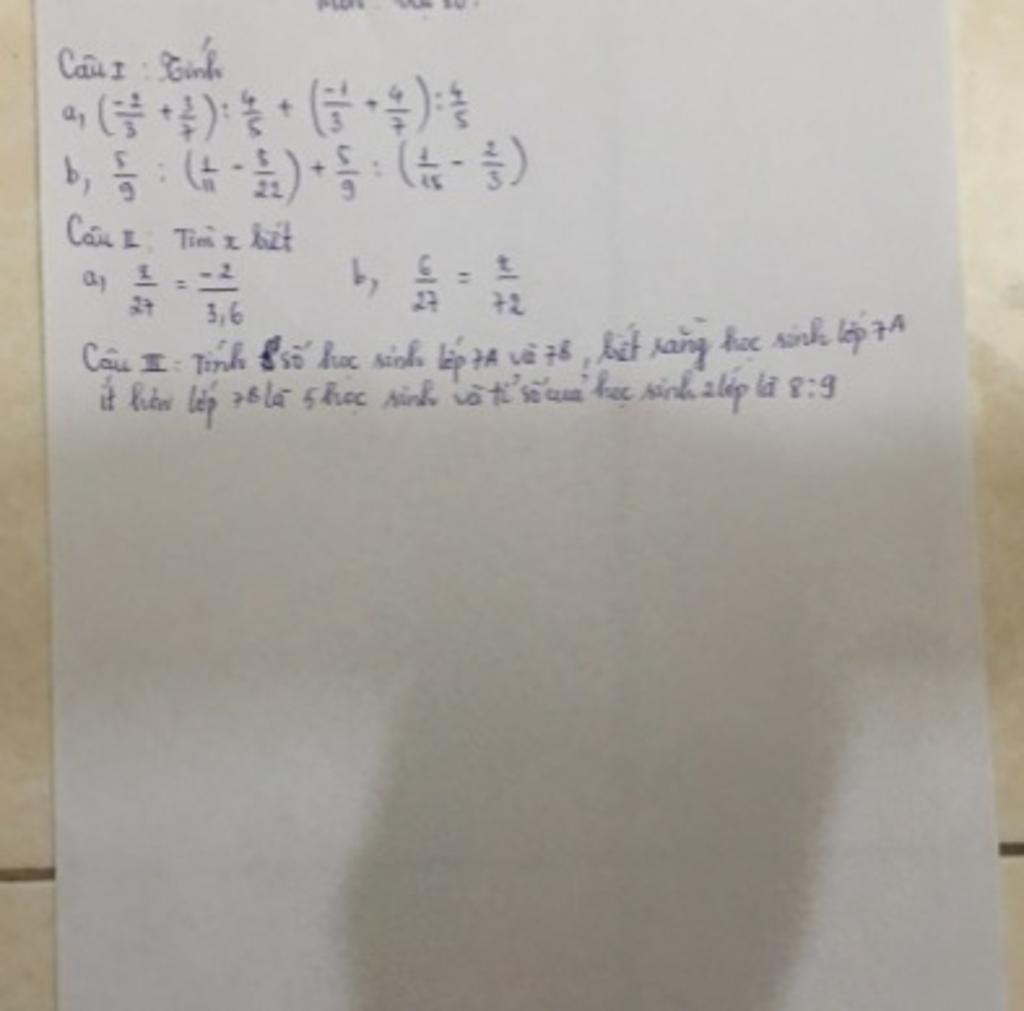 Câu I : Tính
a, (-2/3 + 3/7) : 4/5 + (-1/3 + 4/7) : 4/5
b, 5/9 : (1/11 - 5/22) + 5/9 : (1/15 - 2/3)
Câu II : Tìm x biết
a, x/27 = -2/3,6 b, 6/27 = x/72
Câu III : Tính số học sinh lớp 7A và 7B, biết rằng học sinh lớp 7A
ít hơn lớp 7B là 5 học sinh và tỉ số của học sinh 2 lớp là 8:9